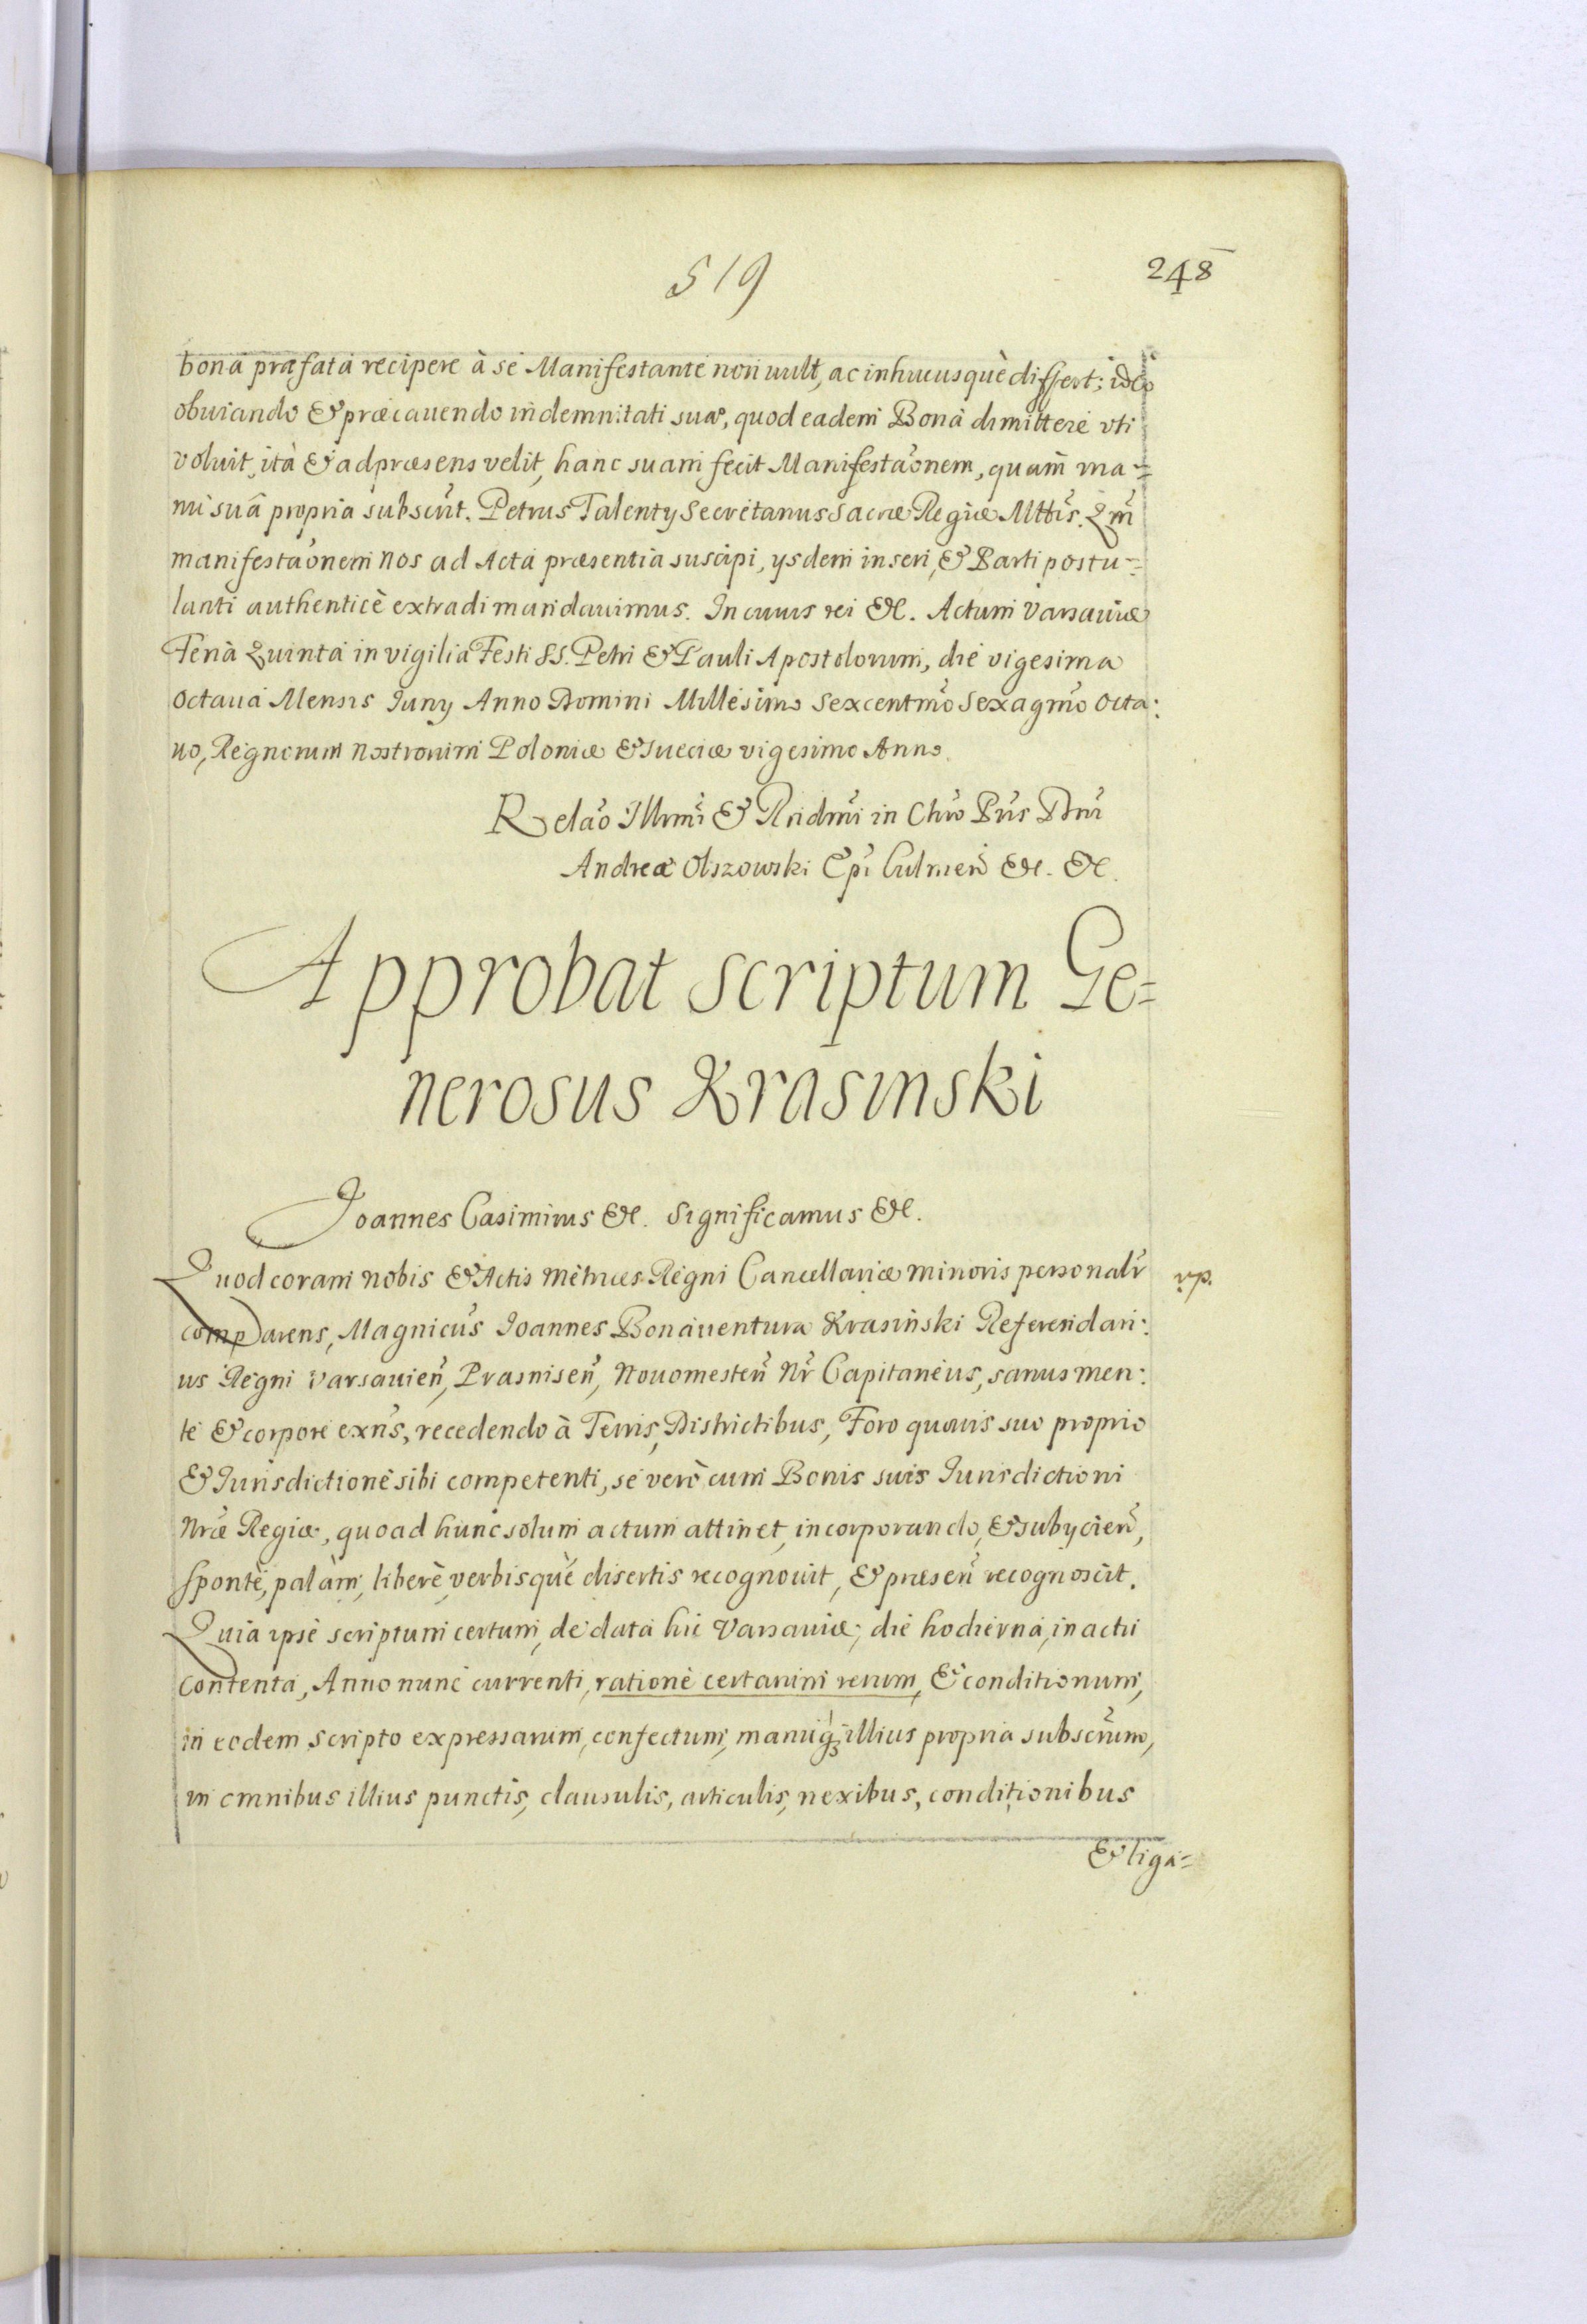 519
248
bona præfata recipere à se Manifestante non uult, ac inhucusquè differt; ideo
obuiando & præcauendo indemnitati suæ, quod eadem Bona dimittere uti
voluit, ità & ad præsens velit, hanc suam fecit Manifestãonem, quam ma=
nu suâ propria subscrit. Petrus Talenty Secretarius Sacræ Regiæ Mttis. Qm̃
manifestãonem nos ad Acta præsentia suscipi, ysdem inseri, & Parti postu=
lanti authenticè extradi mandauimus. In cuius rei &c. Actum Varsauiæ
Feria Quinta in vigilia Festi SS. Petri & Pauli Apostolorum, die vigesima
Octaua Mensis Juny Anno Domini Millesimo Sexcentmo Sexagmo Octa:
uo, Regnorum Nostrorum Poloniæ & Sueciæ vigesimo Anno.
Relão Illrmi & Rndmi in Chro Pris Dni
Andreæ Olszowski Epi Culmeñ &c. &c.
Approbat scriptum Ge=
nerosus Krasinski
Joannes Casimirus &c. Significamus &c.
Quod coram nobis & Actis Metrices Regni Cancellariæ minoris personalr
comparens, Magnicus Joannes Bonauentura Krasiński Referendari:
us Regni Varsauieñ, Prasniseñ, Nouomesteñ Nr Capitaneus, sanus men:
te & corpore exñs, recedendo à Terris, Districtibus, Foro quouis suo proprio
& Jurisdictione sibi competenti, se verò cum Bonis suis Jurisdictioni
Nræ Regiæ, quoad hunc solum actum attinet, incorporando, & subycieñ,
spontè, palàm, liberè, verbisquè disertis recognouit, & præseñ recognoscit.
Quia ipse scriptum certum, de data hic Varsauiæ, die hodierna, in actu
contenta, Anno nunc currenti, ratione certarum rerum, & conditionum,
in eodem scripto expressarum, confectum, manuq; illius propria subscrum,
in omnibus illius punctis, clausulis, articulis, nexibus, conditionibus
& liga=